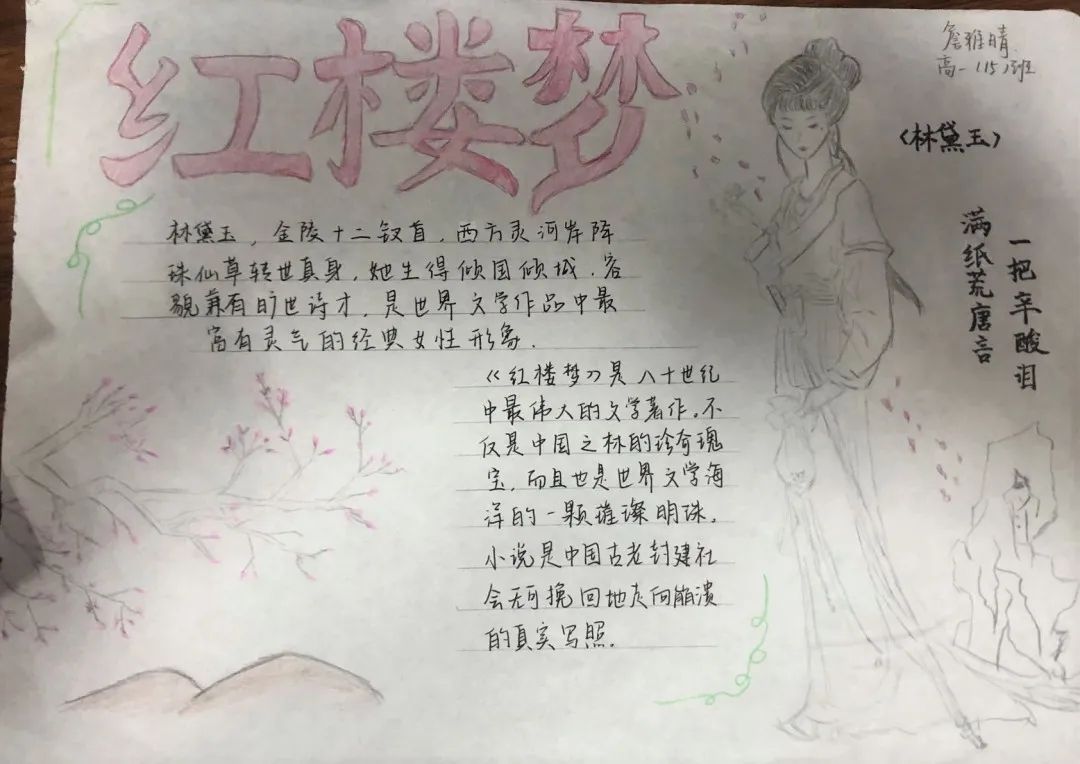 红楼梦
詹雅晴
高一(15)班
(林黛玉)
林黛玉，金陵十二钗首，西方灵河岸降
珠仙草转世真身，她生得倾国倾城，容
貌兼有旷世诗才，是世界文学作品中最
富有灵气的经典女性形象．
《红楼梦》是八十世纪
中最伟大的文学著作。不
仅是中国之林的珍奇瑰
宝，而且也是世界文学海
洋的一颗璀璨明珠，
小说是中国古老封建社
会无可挽回地走向崩溃
的真实写照．
满纸荒唐言
一把辛酸泪